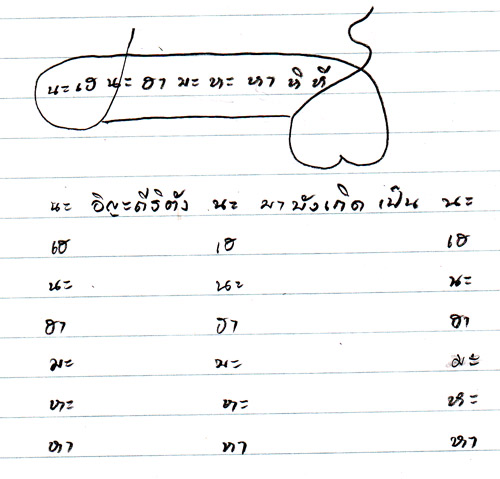 นะ เฮ นะ ฮา มะ หะ หา หิ หี
นะ อิญะตีริตัง นะ มา บังเกิด เป็น นะ
เฮ เฮ เฮ
นะ นะ นะ
ฮา ฮา ฮา
มะ มะ มะ
หะ หะ หะ
หา หา หา